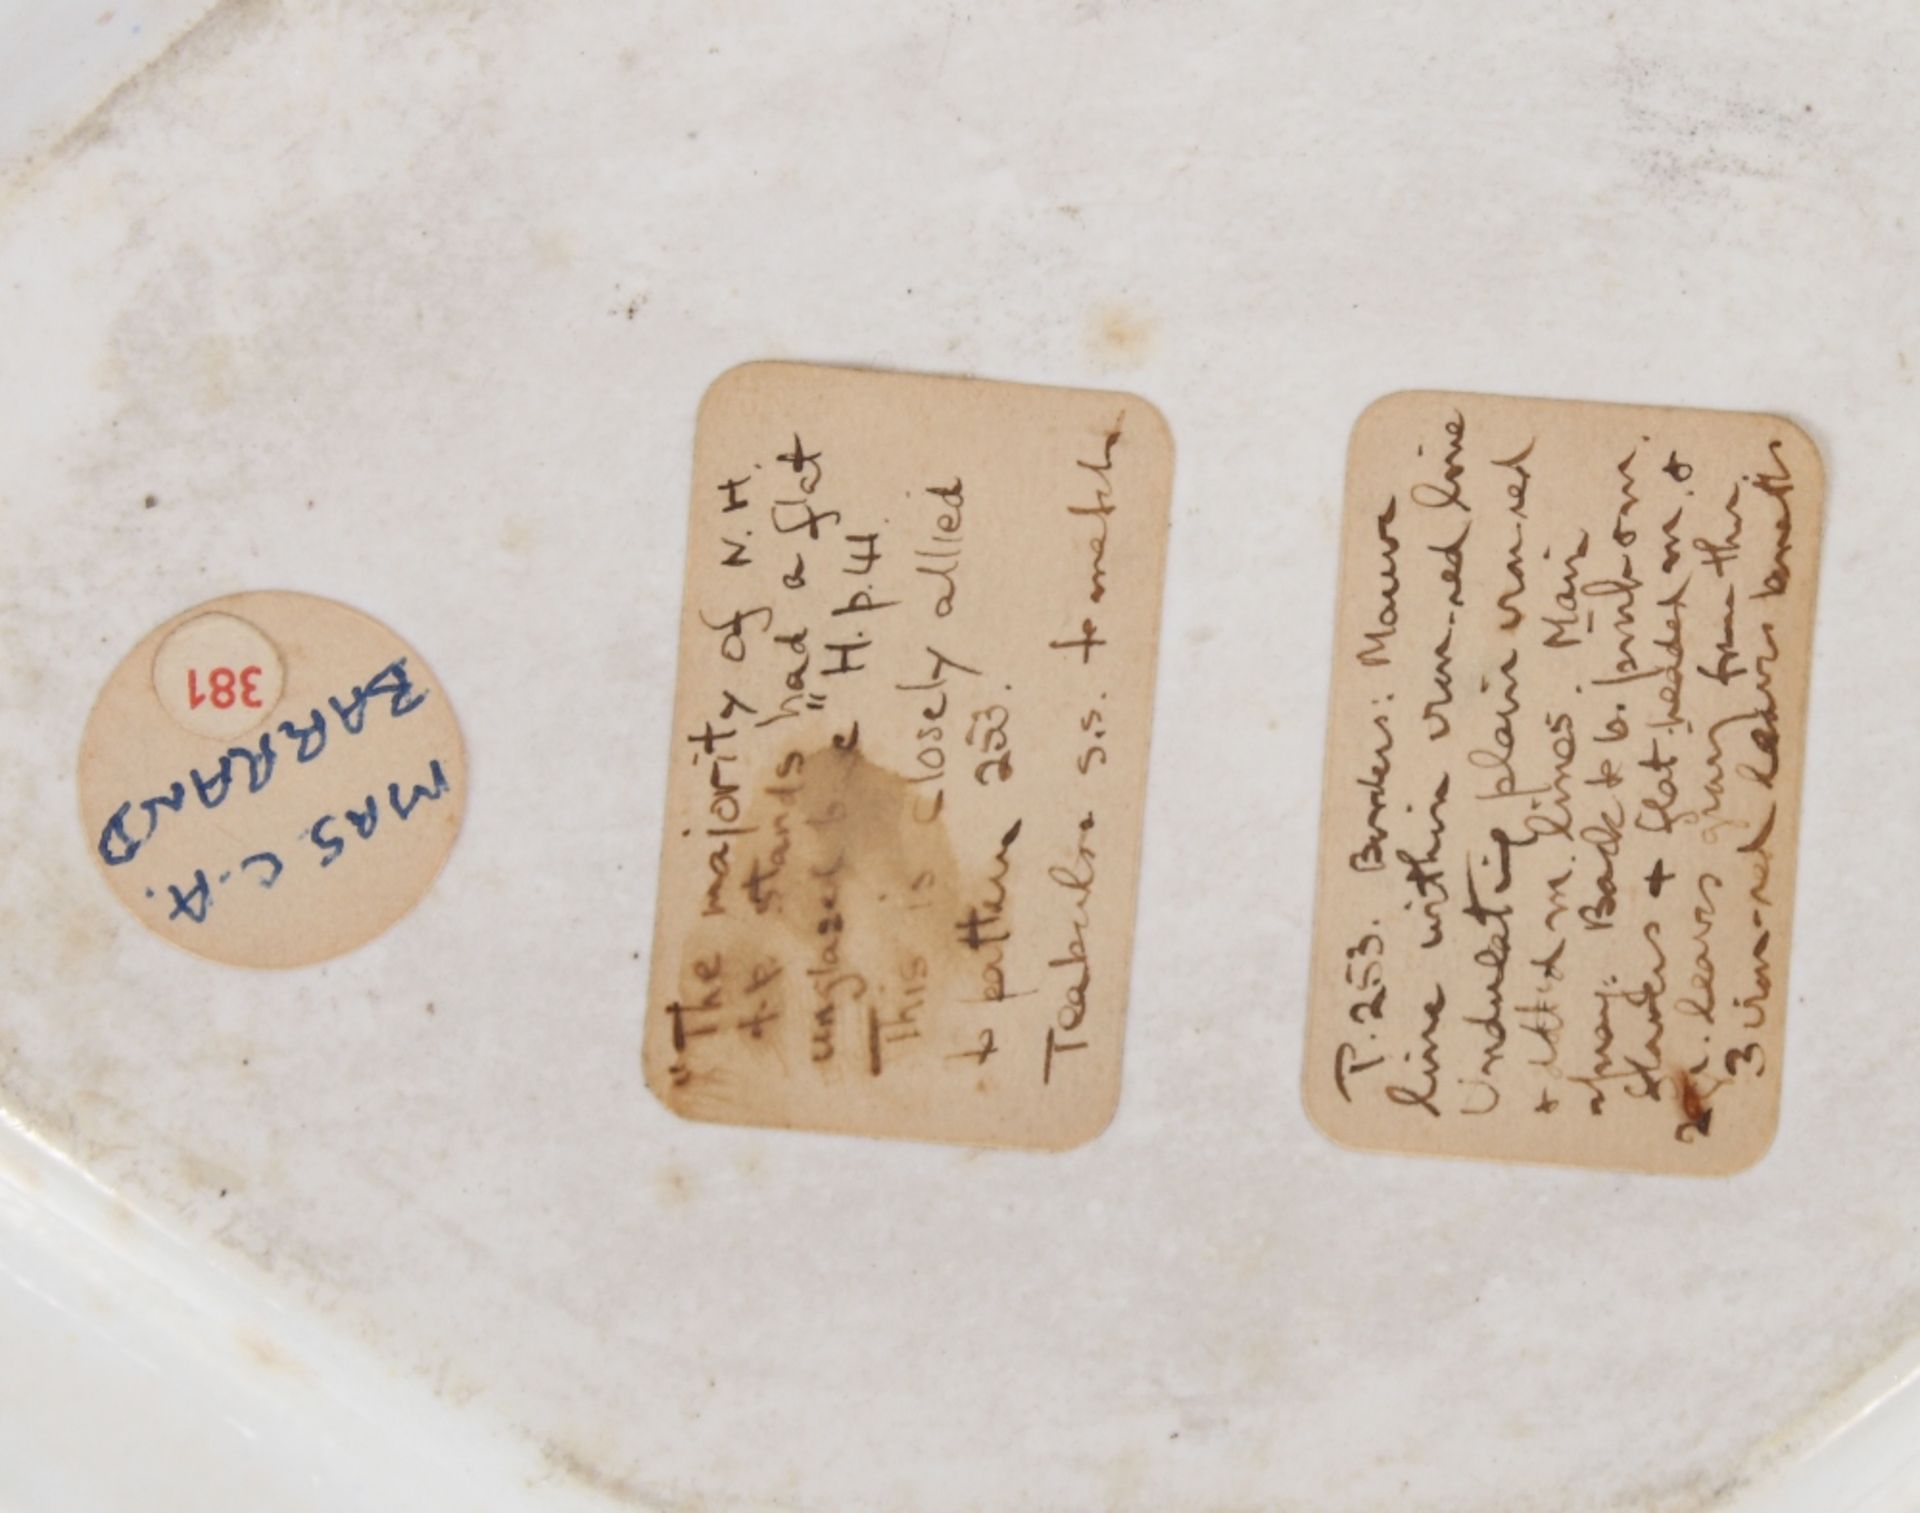 381
MRS. C. A.
BARRAND
"The majority of N.H.
t.p. stands had a flat
unglazed base" H. p. 41.
This is closely allied
to pattern 253.
s.s. to match
P. 253. Border: Mauve
line within iron-red line
Undulating plain iron-red
+ m. lines. Main
Back to b. pink
+ flat headed m. +
leaves from this.
3 iron-red leaves beneath